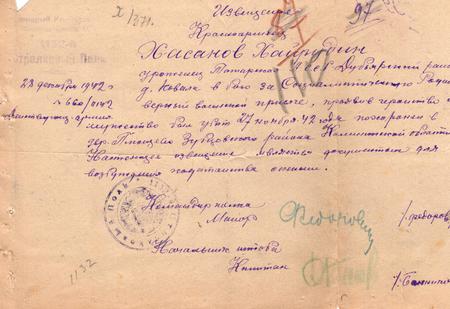 X/371.
Извещение
97
Красноармеец
Хасанов Хайрутдин
Стрелковый Полк
уроженец Татарской АССР Дубъязский рай
22 декабря 1942
д. в бою за Социалистическую Родину
№ 660/0142
верный военной присяге, проявив геройство
Действующая армия
мужество был убит 27 ноября 42 года похоронен в
дер. Зубцовского района Калининской области
Настоящее извещение является документом для
возбуждения ходатайства о пенсии.
Командир полка
Майор
Федорович
Начальник штаба
Капитан
1132